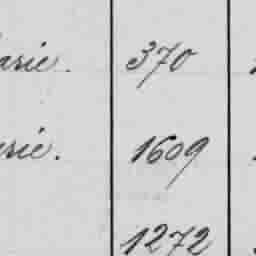 arie. 370
arie. 1609
1272